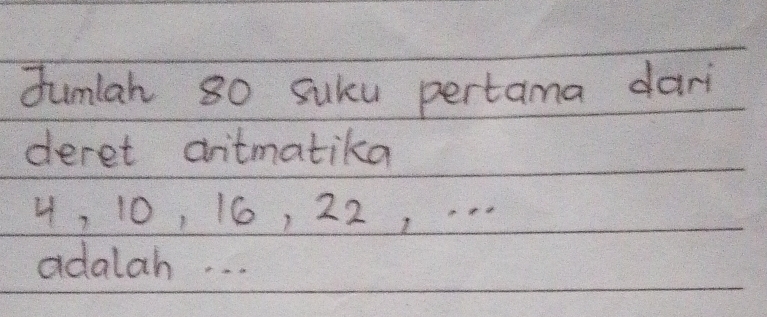 Jumlah 80 suku pertama dari
deret aritmatika
4, 10, 16, 22, ...
adalah ...